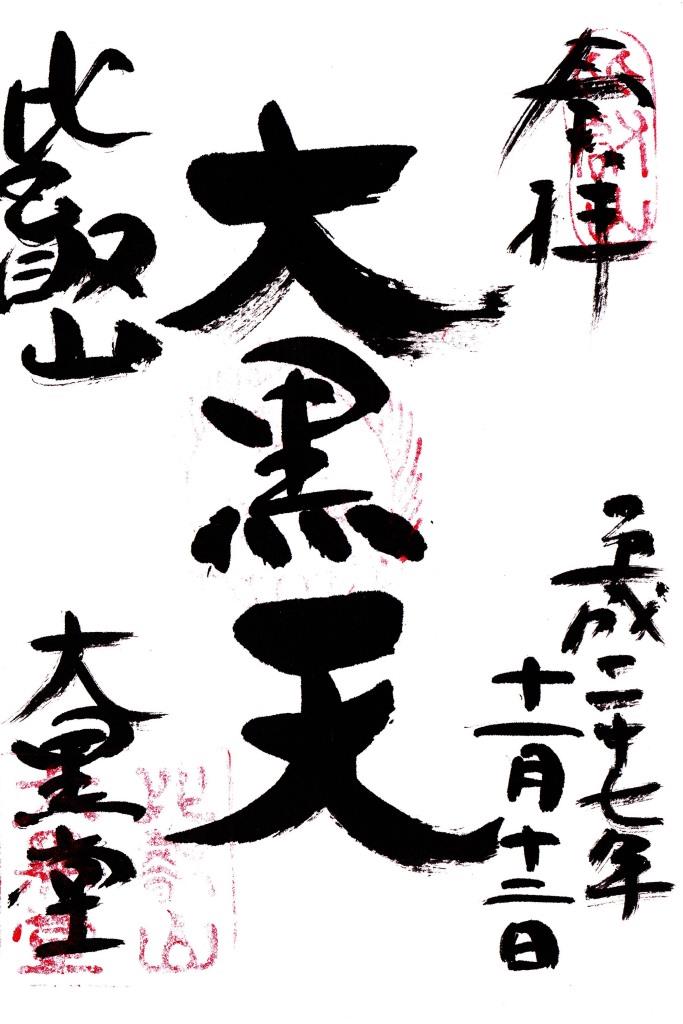 奉拝
平成二十七年
十一月十二日
大黒天
比叡山
大黒堂